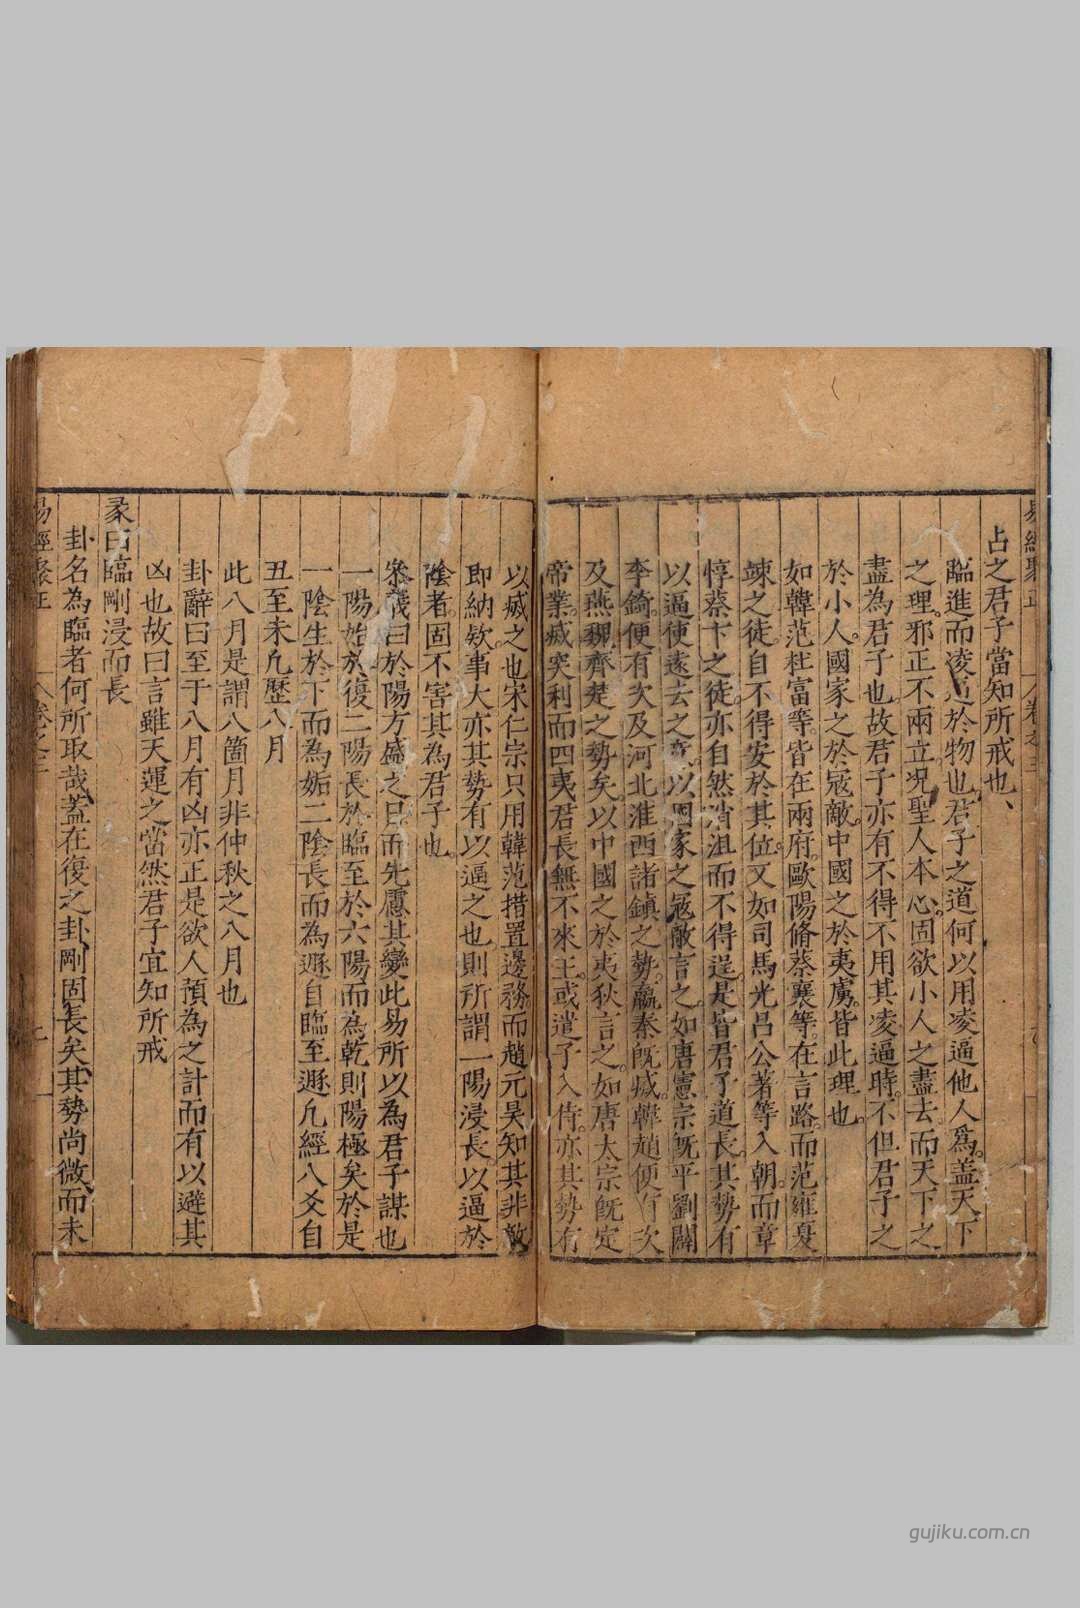 占之君子當知所戒也、
臨進而凌逼於物也君子之道何以用凌逼他人爲蓋天下
之理邪正不兩立况聖人本心固欲小人之盡去而天下之
盡為君子也故君子亦有不得不用其凌逼時不但君子之
於小人國家之於寇敵中國之於夷虜皆此理也
如韓范杜富等皆在兩府歐陽脩蔡襄等在言路而范雍夏
竦之徒自不得安於其位又如司馬光呂公著等入朝而章
惇蔡卞之徒亦自然消沮而不得逞是皆君子道長其勢有
以逼使遠去之以國家之寇敵言之如唐憲宗既平劉闢
李錡便有次及河北淮西諸鎮之勢嬴秦既滅韓趙便有次
及燕魏齊楚之勢矣以中國之於夷狄言之如唐太宗既定
帝業滅突利而四夷君長無不來王或遣子入侍亦其勢有
以滅之也宋仁宗只用韓范措置邊務而趙元昊知其非敵
即納欵事大亦其勢有以逼之也則所謂一陽浸長以逼於
陰者固不害其為君子也
衆義曰於陽方盛之日而先慮其變此易所以為君子謀也
一陽始於復二陽長於臨至於六陽而為乾則陽極矣於是
一陰生於下而為姤二陰長而為遯自臨至遯凢經八爻自
丑至未凢歷八月
此八月是謂八箇月非仲秋之八月也
卦辭曰至于八月有凶亦正是欲人預為之計而有以避其
凶也故曰言雖天運之當然君子宜知所戒
彖曰臨剛浸而長
卦名為臨者何所取哉蓋在復之卦剛固長矣其勢尚微而未
易經聚正 卷之三
gujiku.com.cn